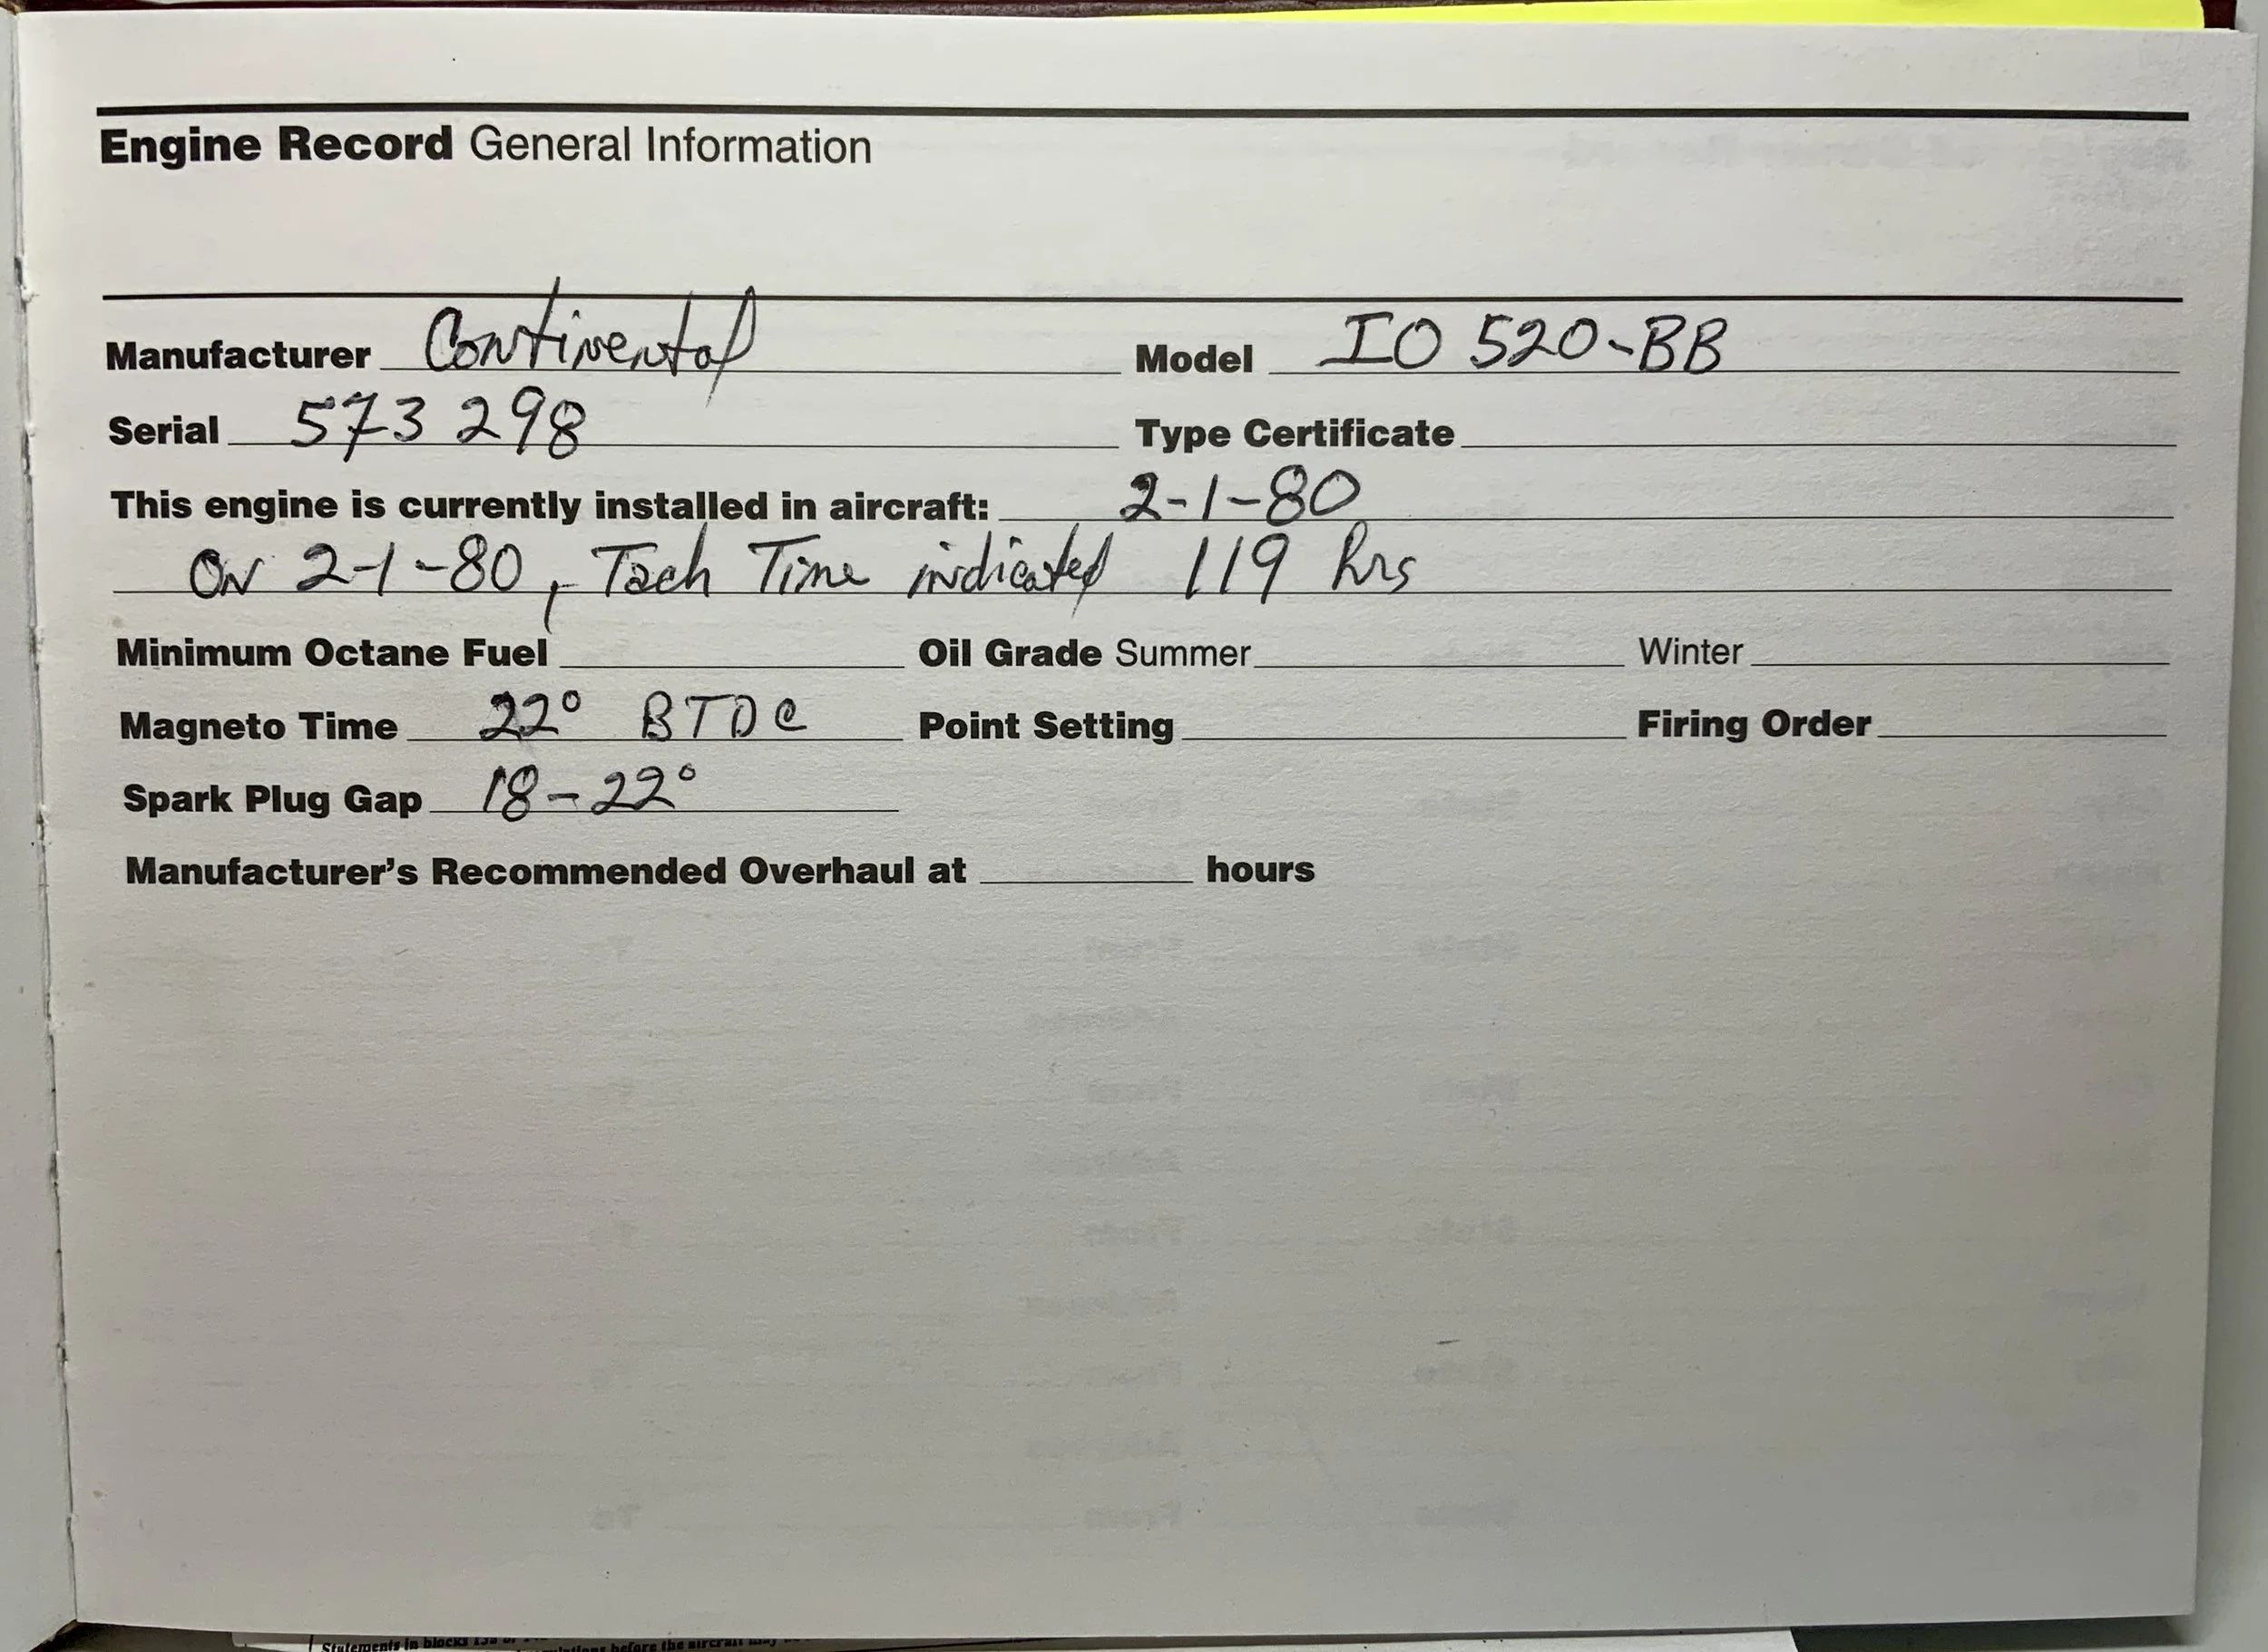 Engine Record General Information
Manufacturer Continental Model IO 520-BB
Serial 573 298 Type Certificate
This engine is currently installed in aircraft: 2-1-80
ON 2-1-80, Tach Time indicated 119 hrs
Minimum Octane Fuel Oil Grade Summer Winter
Magneto Time 22° BTDC Point Setting Firing Order
Spark Plug Gap 18-22°
Manufacturer's Recommended Overhaul at hours
Statements in blocks before the aircraft may